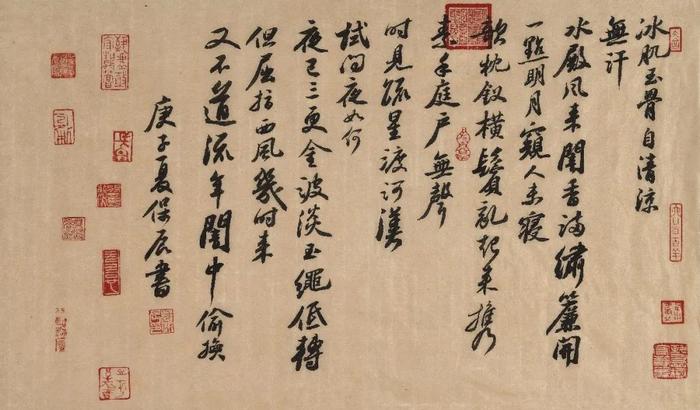 冰肌玉骨自清涼
無汗
水殿風來闇香滿繡簾開
一點明月窺人未寢
欹枕釵橫鬢亂起來攜
素手庭戶無聲
時見疏星渡河漢
試問夜如何
夜已三更金波淡玉繩低轉
但屈指西風幾時來
又不道流年闇中偷換
庚子夏保辰書